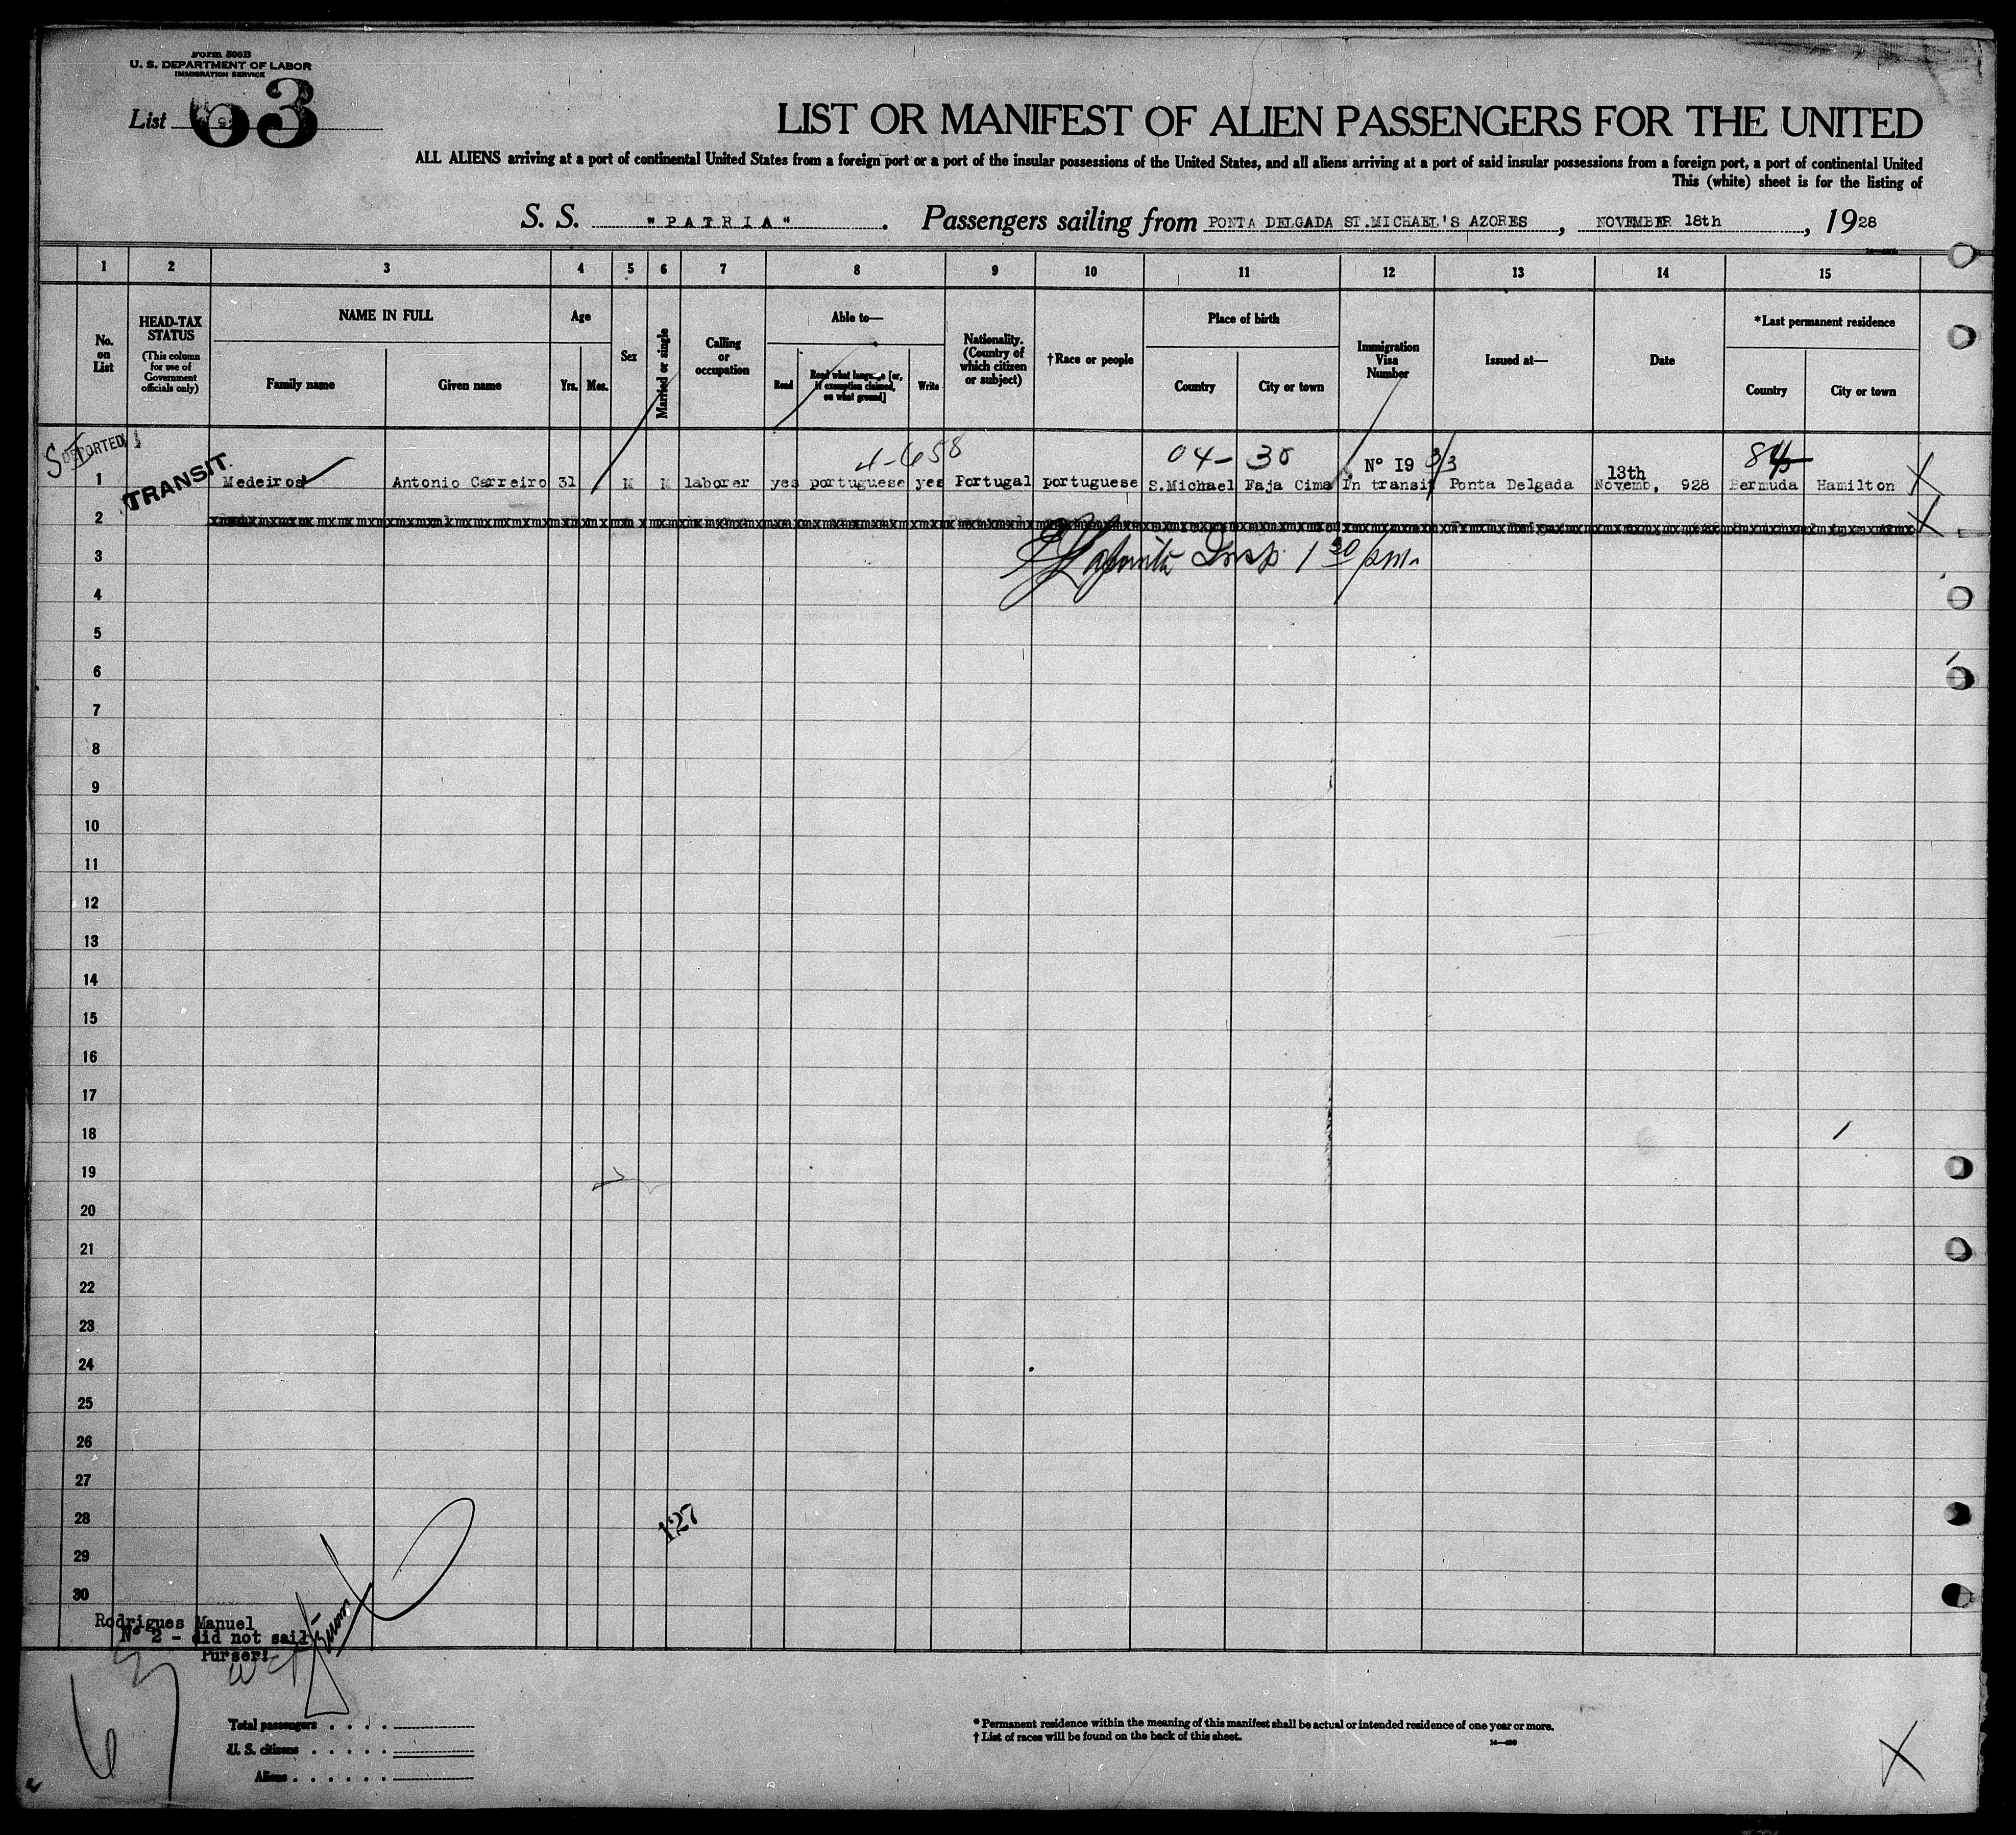 Form 500B
U. S. DEPARTMENT OF LABOR
IMMIGRATION SERVICE
List 63
LIST OR MANIFEST OF ALIEN PASSENGERS FOR THE UNITED
ALL ALIENS arriving at a port of continental United States from a foreign port or a port of the insular possessions of the United States, and all aliens arriving at a port of said insular possessions from a foreign port, a port of continental United
This (white) sheet is for the listing of
S. S. "PATRIA". Passengers sailing from PONTA DELGADA ST.MICHAEL'S AZORES, NOVEMBER 18th, 1928
1 2 3 4 5 6 7 8 9 10 11 12 13 14 15
No. on List
HEAD-TAX STATUS
(This column for use of Government officials only)
NAME IN FULL
Family name Given name
Age
Yrs. Mos.
Sex
Married or single
Calling or occupation
Able to—
Read
Read what language [or, if exemption claimed, on what ground]
Write
Nationality. (Country of which citizen or subject)
†Race or people
Place of birth
Country City or town
Immigration Visa Number
Issued at—
Date
*Last permanent residence
Country City or town
DEPORTED
TRANSIT
4-658
04-38
Nº I9 3/3
13th
84
1 Medeiros Antonio Carreiro 31 M M laborer yes portuguese yes Portugal portuguese S.Michael Faja Cima In transit Ponta Delgada Novemb, 928 Bermuda Hamilton
2
Insp. 1 30 pm.
3
4
5
6
7
8
9
10
11
12
13
14
15
16
17
18
19
20
21
22
23
24
25
26
27
28
127
29
30
Rodrigues Manuel
Nº 2 - did not sail
Purser:
Total passengers
U. S. citizens
Aliens
* Permanent residence within the meaning of this manifest shall be actual or intended residence of one year or more.
† List of races will be found on the back of this sheet.